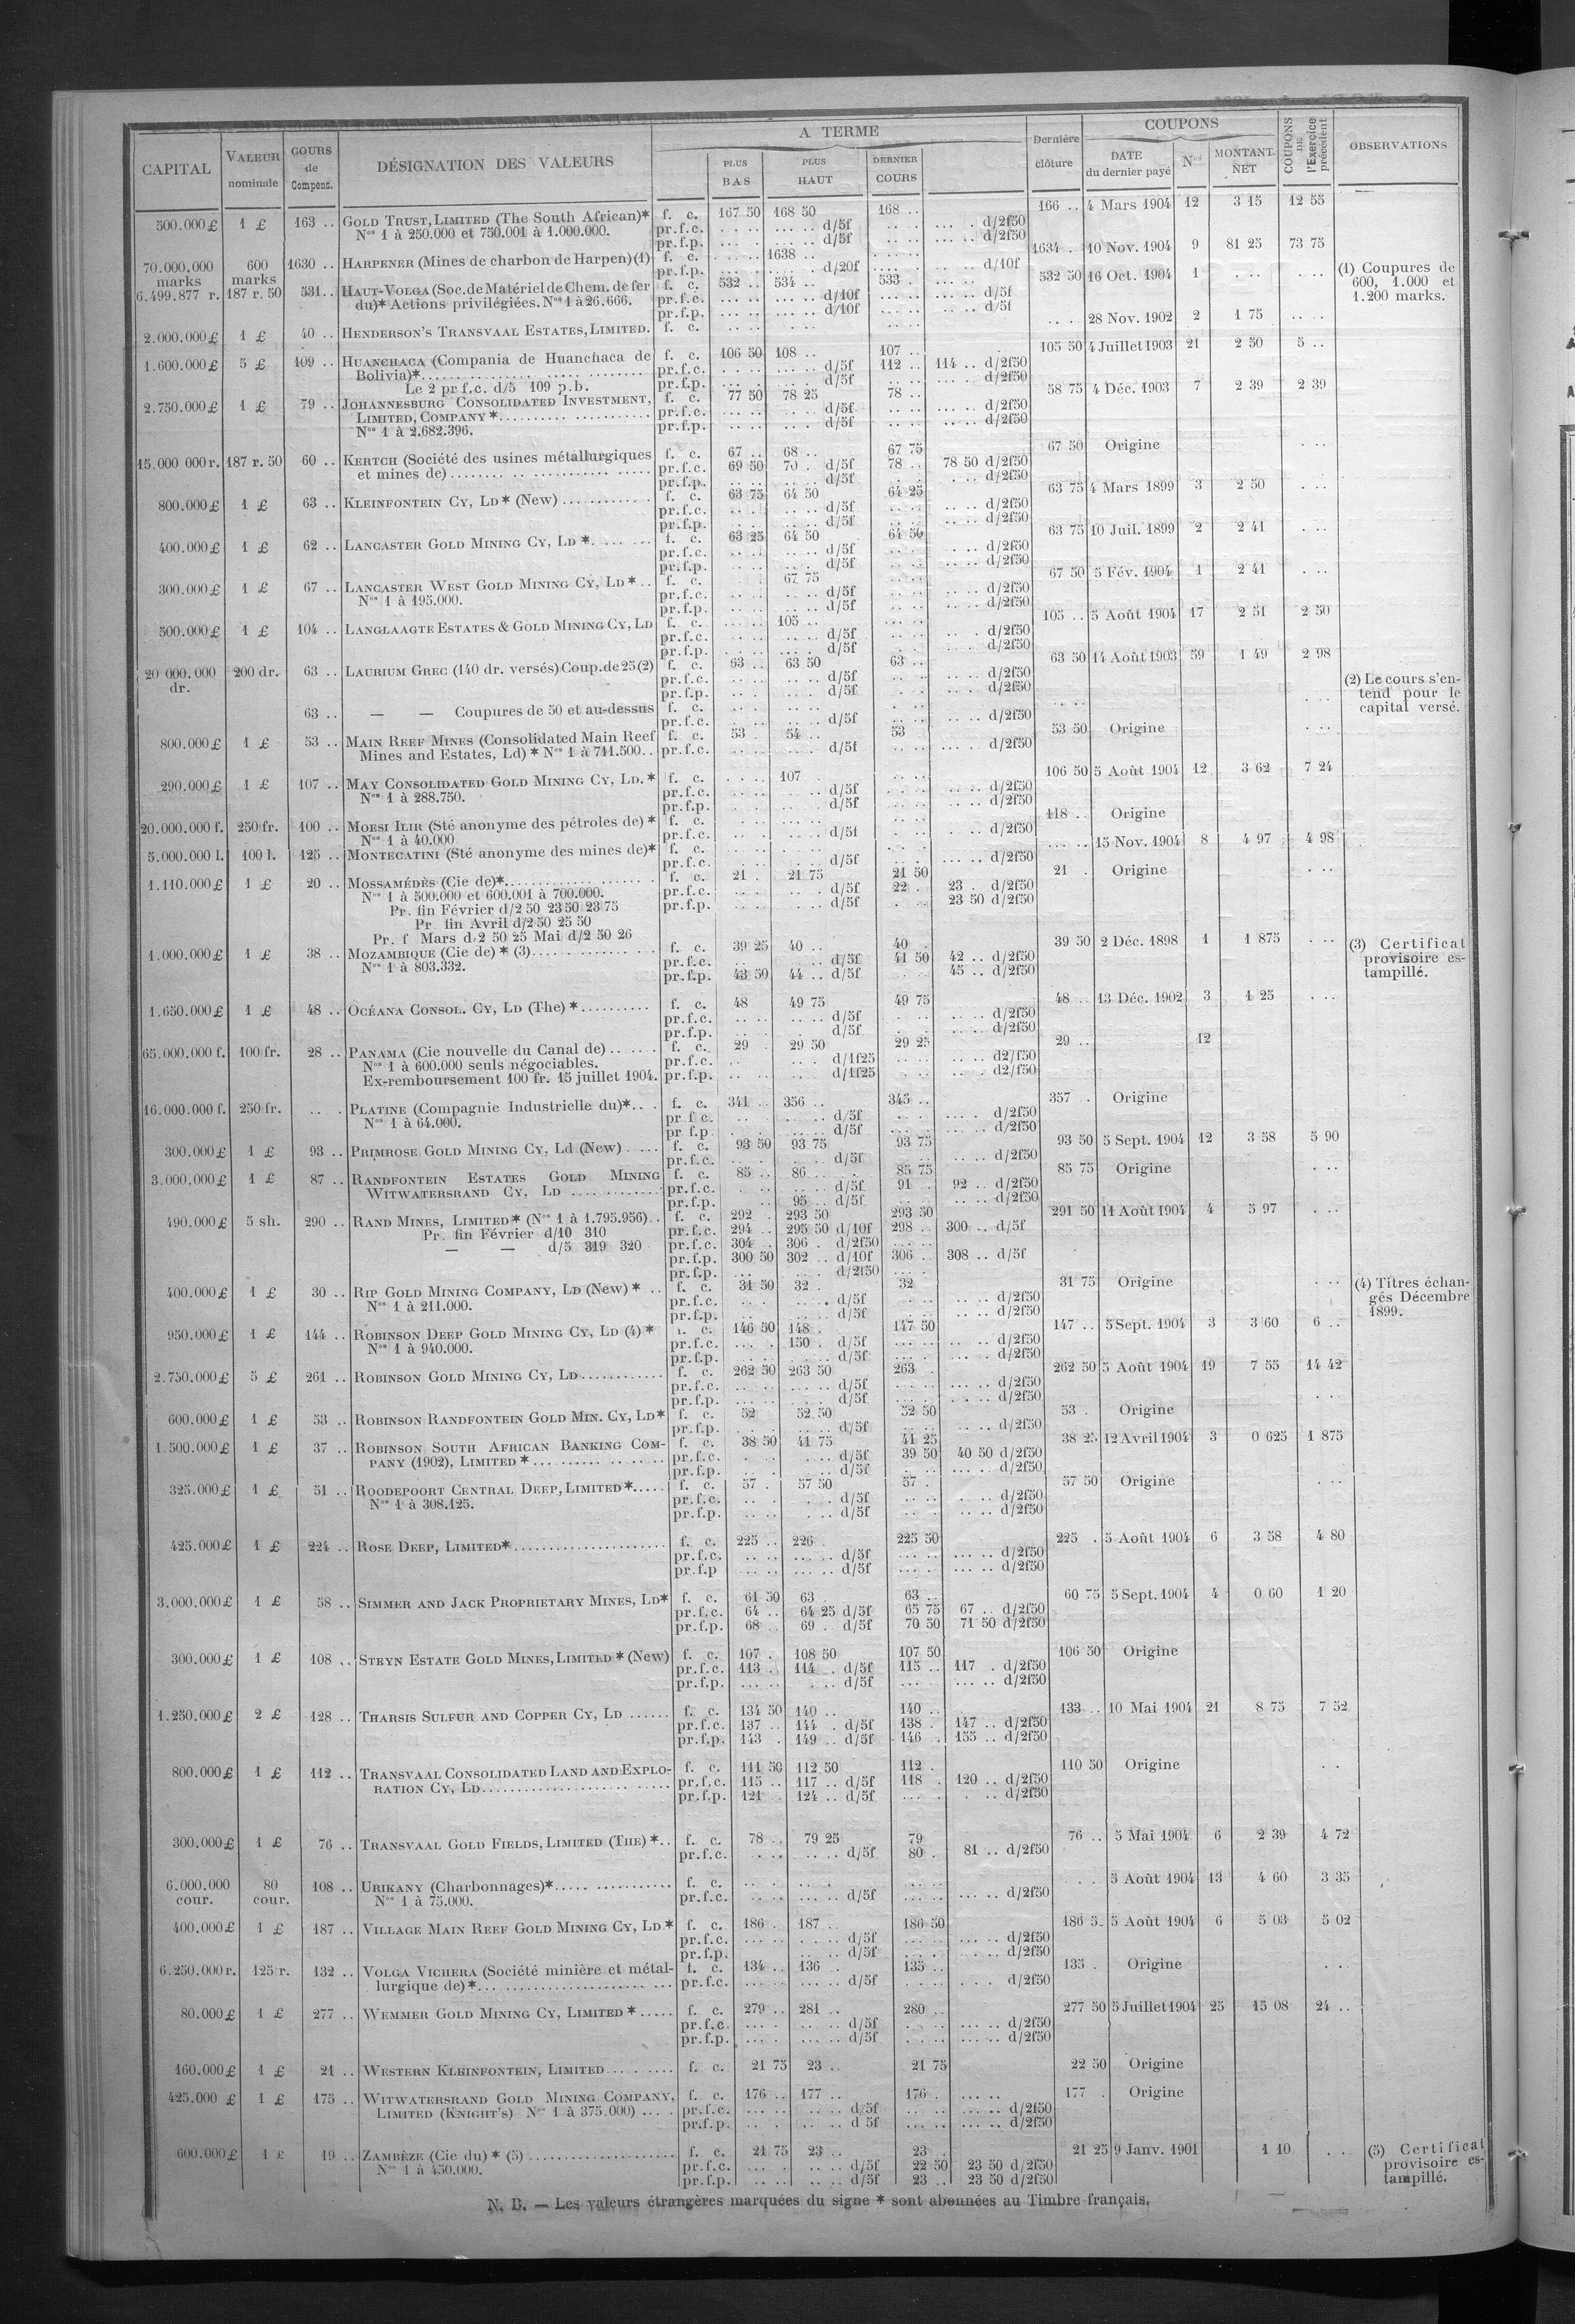 CAPITAL VALEUR nominale COURS de Compens. DÉSIGNATION DES VALEURS A TERME PLUS BAS PLUS HAUT DERNIER COURS Dernière clôture COUPONS DATE du dernier payé Nos MONTANT NET COUPONS DE l'Exercice précédent OBSERVATIONS
500.000 £ 1 £ 163 .. GOLD TRUST, LIMITED (The South African)* f. c. 167 50 168 50 168 .. 166 .. 4 Mars 1904 12 3 15 12 55
Nos 1 à 250.000 et 750.001 à 1.000.000. pr.f.c. d/5f d/2f50
pr.f.p. d/5f d/2f50
70.000.000 marks 600 marks 1630 .. HARPENER (Mines de charbon de Harpen) (1) f. c. 1638 .. 1634 . 10 Nov. 1904 9 81 25 73 75 (1) Coupures de 600, 1.000 et 1.200 marks.
pr.f.p. d/20f d/10f
6.499.877 r. 187 r. 50 531 .. HAUT-VOLGA (Soc. de Matériel de Chem. de fer f. c. 532 .. 534 .. 533 . 532 50 16 Oct. 1904 1
du)* Actions privilégiées. Nos 1 à 26.666. pr.f.c. d/10f d/5f
pr.f.p. d/10f d/5f
2.000.000 £ 1 £ 40 .. HENDERSON'S TRANSVAAL ESTATES, LIMITED. f. c. 28 Nov. 1902 2 1 75
1.600.000 £ 5 £ 109 .. HUANCHACA (Compania de Huanchaca de f. c. 106 50 108 .. 107 .. 105 50 4 Juillet 1903 21 2 50 5 ..
Bolivia)* pr.f.c. d/5f 112 .. 114 .. d/2f50
Le 2 pr f.c. d/5 109 p.b. pr.f.p. d/5f d/2f50
2.750.000 £ 1 £ 79 .. JOHANNESBURG CONSOLIDATED INVESTMENT, f. c. 77 50 78 25 78 .. 58 75 4 Déc. 1903 7 2 39 2 39
LIMITED, COMPANY * pr.f.c. d/5f d/2f50
Nos 1 à 2.682.396. pr.f.p. d/5f d/2f50
15.000 000 r. 187 r. 50 60 .. KERTCH (Société des usines métallurgiques f. c. 67 .. 68 .. 67 75 67 50 Origine
et mines de) pr.f.c. 69 50 70 . d/5f 78 .. 78 50 d/2f50
pr.f.p. d/5f d/2f50
800.000 £ 1 £ 63 .. KLEINFONTEIN CY, LD * (New) f. c. 63 75 64 50 64 25 63 75 4 Mars 1899 3 2 50
pr.f.c. d/5f d/2f50
pr.f.p. d/5f d/2f50
400.000 £ 1 £ 62 .. LANCASTER GOLD MINING CY, LD * f. c. 63 25 64 50 64 50 63 75 10 Juil. 1899 2 2 41
pr.f.c. d/5f d/2f50
pr.f.p. d/5f d/2f50
300.000 £ 1 £ 67 .. LANCASTER WEST GOLD MINING CY, LD * f. c. 67 75 67 50 5 Fév. 1904 1 2 41
Nos 1 à 195.000. pr.f.c. d/5f d/2f50
pr.f.p. d/5f d/2f50
500.000 £ 1 £ 104 .. LANGLAAGTE ESTATES & GOLD MINING CY, LD f. c. 105 .. 105 .. 5 Août 1904 17 2 51 2 50
pr.f.c. d/5f d/2f50
pr.f.p. d/5f d/2f50
20 000.000 dr. 200 dr. 63 .. LAURIUM GREC (140 dr. versés) Coup. de 25 (2) f. c. 63 .. 63 50 63 .. 63 50 14 Août 1903 59 1 49 2 98 (2) Le cours s'entend pour le capital versé.
pr.f.c. d/5f d/2f50
pr.f.p. d/5f d/2f50
63 .. — — Coupures de 50 et au-dessus f. c.
pr.f.c. d/5f d/2f50
800.000 £ 1 £ 53 .. MAIN REEF MINES (Consolidated Main Reef f. c. 53 . 54 .. 53 53 50 Origine
Mines and Estates, Ld) * Nos 1 à 711.500 .. pr.f.c. d/5f d/2f50
290.000 £ 1 £ 107 .. MAY CONSOLIDATED GOLD MINING CY, LD. * f. c. 107 106 50 5 Août 1904 12 3 62 7 24
Nos 1 à 288.750. pr.f.c. d/5f d/2f50
pr.f.p. d/5f d/2f50
20.000.000 f. 250 fr. 100 .. MOESI ILIR (Sté anonyme des pétroles de) * f. c. 118 .. Origine
Nos 1 à 40.000 pr.f.c. d/5f d/2f50
5.000.000 l. 100 l. 125 .. MONTECATINI (Sté anonyme des mines de)* f. c. 15 Nov. 1904 8 4 97 4 98
pr.f.c. d/5f d/2f50
1.110.000 £ 1 £ 20 .. MOSSAMÉDÈS (Cie de)* f. c. 21 . 21 75 21 50 21 . Origine
Nos 1 à 500.000 et 600.001 à 700.000. pr.f.c. d/5f 22 . 23 . d/2f50
Pr. fin Février d/2 50 23 50 23 75 pr.f.p. d/5f 23 50 d/2f50
Pr. fin Avril d/2 50 25 50
Pr. f Mars d/2 50 25 Mai d/2 50 26
1.000.000 £ 1 £ 38 .. MOZAMBIQUE (Cie de) * (3) f. c. 39 25 40 .. 40 . 39 50 2 Déc. 1898 1 1 875 (3) Certificat provisoire estampillé.
Nos 1 à 803.332. pr.f.c. d/5f 41 50 42 .. d/2f50
pr.f.p. 43 50 44 .. d/5f 45 .. d/2f50
1.650.000 £ 1 £ 48 .. OCÉANA CONSOL. CY, LD (The) * f. c. 48 49 75 49 75 48 .. 13 Déc. 1902 3 1 25
pr.f.c. d/5f d/2f50
pr.f.p. d/5f d/2f50
65.000.000 f. 100 fr. 28 .. PANAMA (Cie nouvelle du Canal de) f. c. 29 . 29 50 29 25 29 .. 12
Nos 1 à 600.000 seuls négociables. pr.f.c. d/1f25 d2/f50
Ex-remboursement 100 fr. 15 juillet 1904. pr.f.p. d/1f25 d2/f50
16.000.000 f. 250 fr. PLATINE (Compagnie Industrielle du)* f. c. 341 .. 356 .. 345 .. 357 .. Origine
Nos 1 à 64.000. pr f c. d/5f d/2f50
pr f.p d/5f d/2f50
300.000 £ 1 £ 93 .. PRIMROSE GOLD MINING CY, Ld (New) f. c. 93 50 93 75 93 75 93 50 5 Sept. 1904 12 3 58 5 90
pr.f.c. d/5f d/2f50
3.000.000 £ 1 £ 87 .. RANDFONTEIN ESTATES GOLD MINING f. c. 85 .. 86 .. 85 75 85 75 Origine
WITWATERSRAND CY, LD pr.f.c. d/5f 91 . 92 .. d/2f50
pr.f.p. 95 .. d/5f d/2f50
490.000 £ 5 sh. 290 .. RAND MINES, LIMITED * (Nos 1 à 1.795.956) f. c. 292 . 293 50 293 50 291 50 11 Août 1904 4 5 97
Pr. fin Février d/10 310 pr.f.c. 294 .. 295 50 d/10f 298 . 300 .. d/5f
— — d/5 319 320 pr.f.c. 304 .. 306 . d/2f50
pr.f.p. 300 50 302 .. d/10f 306 .. 308 .. d/5f
pr.f.p. d/2f50
400.000 £ 1 £ 30 .. RIP GOLD MINING COMPANY, LD (New) * f. c. 31 50 32 . 32 31 75 Origine (4) Titres échangés Décembre 1899.
Nos 1 à 211.000. pr.f.c. d/5f d/2f50
pr.f.p. d/5f d/2f50
950.000 £ 1 £ 144 .. ROBINSON DEEP GOLD MINING CY, LD (4) * f. c. 146 50 148 . 147 50 147 .. 5 Sept. 1904 3 3 60 6 ..
Nos 1 à 940.000. pr.f.c. 150 . d/5f d/2f50
pr.f.p. d/5f d/2f50
2.750.000 £ 5 £ 261 .. ROBINSON GOLD MINING CY, LD f. c. 262 50 263 50 263 . 262 50 5 Août 1904 19 7 55 14 42
pr.f.c. d/5f d/2f50
pr.f.p. d/5f d/2f50
600.000 £ 1 £ 53 .. ROBINSON RANDFONTEIN GOLD MIN. CY, LD* f. c. 52 52 50 52 50 53 . Origine
pr.f.p. d/5f d/2f50
1.500.000 £ 1 £ 37 .. ROBINSON SOUTH AFRICAN BANKING COM- f. c. 38 50 41 75 41 25 12 Avril 1904 3 0 625 1 875
PANY (1902), LIMITED * pr.f.c. d/5f 39 50 40 50 d/2f50
pr.f.p. d/5f d/2f50
325.000 £ 1 £ 51 .. ROODEPOORT CENTRAL DEEP, LIMITED * f. c. 57 . 57 50 57 . 57 50 Origine
Nos 1 à 308.125. pr.f.c. d/5f d/2f50
pr.f.p. d/5f d/2f50
425.000 £ 1 £ 224 .. ROSE DEEP, LIMITED* f. c. 225 .. 226 225 50 225 . 5 Août 1904 6 3 58 4 80
pr.f.c. d/5f d/2f50
pr.f.p d/5f d/2f50
3.000.000 £ 1 £ 58 .. SIMMER AND JACK PROPRIETARY MINES, LD* f. c. 61 50 63 . 63 .. 60 75 5 Sept. 1904 4 0 60 1 20
pr.f.c. 64 .. 64 25 d/5f 65 75 67 .. d/2f50
pr.f.p. 68 69 . d/5f 70 50 71 50 d/2f50
300.000 £ 1 £ 108 .. STEYN ESTATE GOLD MINES, LIMITED * (New) f. c. 107 . 108 50 107 50 106 50 Origine
pr.f.c. 113 . 114 . d/5f 115 .. 117 . d/2f50
pr.f.p. d/5f d/2f50
1.250.000 £ 2 £ 128 .. THARSIS SULFUR AND COPPER CY, LD f. c. 134 50 140 .. 140 .. 133 .. 10 Mai 1904 21 8 75 7 52
pr.f.c. 137 .. 144 . d/5f 138 . 147 .. d/2f50
pr.f.p. 143 . 149 .. d/5f 146 . 155 .. d/2f50
800.000 £ 1 £ 112 .. TRANSVAAL CONSOLIDATED LAND AND EXPLO- f. c. 111 50 112 50 112 . 110 50 Origine
RATION CY, LD pr.f.c. 115 .. 117 .. d/5f 118 . 120 .. d/2f50
pr.f.p. 121 .. 124 .. d/5f d/2f50
300.000 £ 1 £ 76 .. TRANSVAAL GOLD FIELDS, LIMITED (THE) * f. c. 78 .. 79 25 79 76 .. 5 Mai 1904 6 2 39 4 72
pr.f.c. d/5f 80 . 81 .. d/2f50
6.000.000 cour. 80 cour. 108 .. URIKANY (Charbonnages)* f. c. 5 Août 1904 13 4 60 3 35
Nos 1 à 75.000. pr.f.c. d/5f d/2f50
400.000 £ 1 £ 187 .. VILLAGE MAIN REEF GOLD MINING CY, LD * f. c. 186 . 187 .. 186 50 186 5. 5 Août 1904 6 5 03 5 02
pr.f.c. d/5f d/2f50
pr.f.p. d/5f d/2f50
6.250.000 r. 125 r. 132 .. VOLGA VICHERA (Société minière et métal- f. c. 134 .. 136 . 135 .. 135 . Origine
lurgique de)* pr.f.c. d/5f d/2f50
80.000 £ 1 £ 277 .. WEMMER GOLD MINING CY, LIMITED * f. c. 279 .. 281 .. 280 .. 277 50 5 Juillet 1904 25 15 08 24 ..
pr.f.c. d/5f d/2f50
pr.f.p. d/5f d/2f50
160.000 £ 1 £ 21 .. WESTERN KLEINFONTEIN, LIMITED f. c. 21 75 23 .. 21 75 22 50 Origine
425.000 £ 1 £ 175 .. WITWATERSRAND GOLD MINING COMPANY, f. c. 176 .. 177 .. 176 . 177 . Origine
LIMITED (KNIGHT'S) Nos 1 à 375.000) pr.f.c. d/5f d/2f50
pr.f.p. d 5f d/2f50
600.000 £ 1 £ 19 .. ZAMBÈZE (Cie du) * (5) f. c. 21 75 23 .. 23 . 21 25 9 Janv. 1901 1 10 (5) Certificat provisoire estampillé.
Nos 1 à 450.000. pr.f.c. d/5f 22 50 23 50 d/2f50
pr.f.p. d/5f 23 .. 23 50 d/2f50
N. B. — Les valeurs étrangères marquées du signe * sont abonnées au Timbre français.